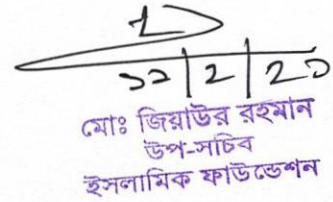 মোঃ জিয়াউর রহমান
উপ-সচিব
ইসলামিক ফাউন্ডেশন